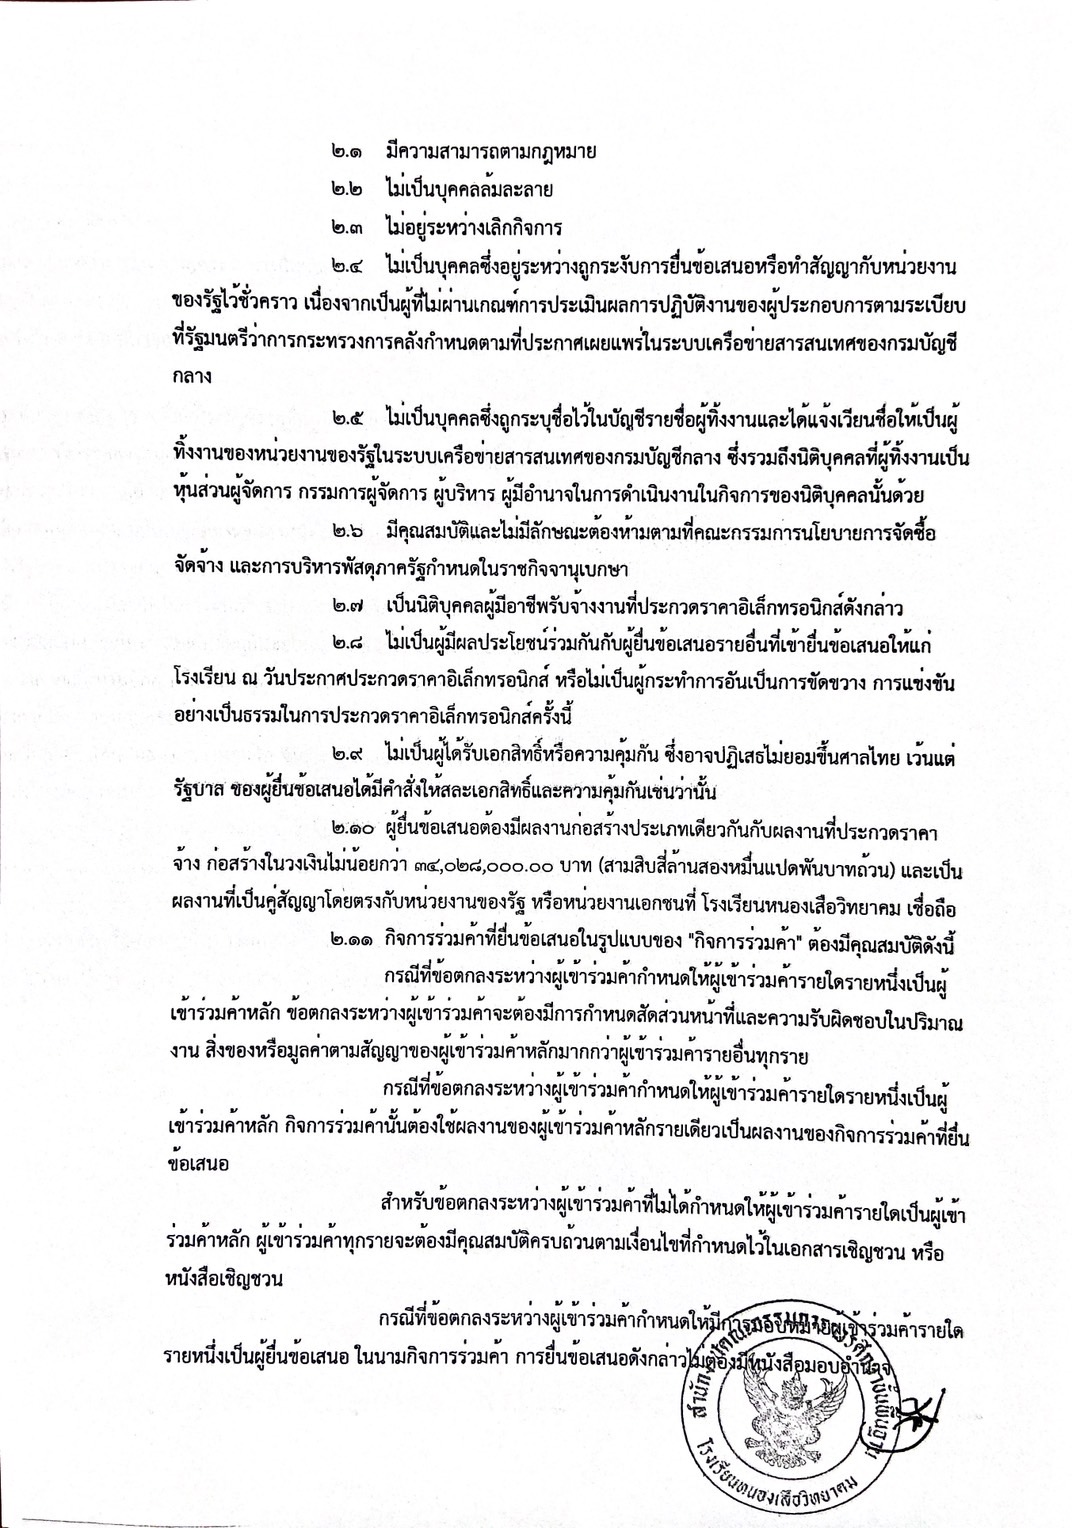 ๒.๑ มีความสามารถตามกฎหมาย
๒.๒ ไม่เป็นบุคคลล้มละลาย
๒.๓ ไม่อยู่ระหว่างเลิกกิจการ
๒.๔ ไม่เป็นบุคคลซึ่งอยู่ระหว่างถูกระงับการยื่นข้อเสนอหรือทำสัญญากับหน่วยงาน
ของรัฐไว้ชั่วคราว เนื่องจากเป็นผู้ที่ไม่ผ่านเกณฑ์การประเมินผลการปฏิบัติงานของผู้ประกอบการตามระเบียบ
ที่รัฐมนตรีว่าการกระทรวงการคลังกำหนดตามที่ประกาศเผยแพร่ในระบบเครือข่ายสารสนเทศของกรมบัญชี
กลาง
๒.๕ ไม่เป็นบุคคลซึ่งถูกระบุชื่อไว้ในบัญชีรายชื่อผู้ทิ้งงานและได้แจ้งเวียนชื่อให้เป็นผู้
ทิ้งงานของหน่วยงานของรัฐในระบบเครือข่ายสารสนเทศของกรมบัญชีกลาง ซึ่งรวมถึงนิติบุคคลที่ผู้ทิ้งงานเป็น
หุ้นส่วนผู้จัดการ กรรมการผู้จัดการ ผู้บริหาร ผู้มีอำนาจในการดำเนินงานในกิจการของนิติบุคคลนั้นด้วย
๒.๖ มีคุณสมบัติและไม่มีลักษณะต้องห้ามตามที่คณะกรรมการนโยบายการจัดซื้อ
จัดจ้าง และการบริหารพัสดุภาครัฐกำหนดในราชกิจจานุเบกษา
๒.๗ เป็นนิติบุคคลผู้มีอาชีพรับจ้างงานที่ประกวดราคาอิเล็กทรอนิกส์ดังกล่าว
๒.๘ ไม่เป็นผู้มีผลประโยชน์ร่วมกันกับผู้ยื่นข้อเสนอรายอื่นที่เข้ายื่นข้อเสนอให้แก่
โรงเรียน ณ วันประกาศประกวดราคาอิเล็กทรอนิกส์ หรือไม่เป็นผู้กระทำการอันเป็นการขัดขวาง การแข่งขัน
อย่างเป็นธรรมในการประกวดราคาอิเล็กทรอนิกส์ครั้งนี้
๒.๙ ไม่เป็นผู้ได้รับเอกสิทธิ์หรือความคุ้มกัน ซึ่งอาจปฏิเสธไม่ยอมขึ้นศาลไทย เว้นแต่
รัฐบาล ของผู้ยื่นข้อเสนอได้มีคำสั่งให้สละเอกสิทธิ์และความคุ้มกันเช่นว่านั้น
๒.๑๐ ผู้ยื่นข้อเสนอต้องมีผลงานก่อสร้างประเภทเดียวกันกับผลงานที่ประกวดราคา
จ้าง ก่อสร้างในวงเงินไม่น้อยกว่า ๓๔,๐๒๘,๐๐๐.๐๐ บาท (สามสิบสี่ล้านสองหมื่นแปดพันบาทถ้วน) และเป็น
ผลงานที่เป็นคู่สัญญาโดยตรงกับหน่วยงานของรัฐ หรือหน่วยงานเอกชนที่ โรงเรียนหนองเสือวิทยาคม เชื่อถือ
๒.๑๑ กิจการร่วมค้าที่ยื่นข้อเสนอในรูปแบบของ "กิจการร่วมค้า" ต้องมีคุณสมบัติดังนี้
กรณีที่ข้อตกลงระหว่างผู้เข้าร่วมค้ากำหนดให้ผู้เข้าร่วมค้ารายใดรายหนึ่งเป็นผู้
เข้าร่วมค้าหลัก ข้อตกลงระหว่างผู้เข้าร่วมค้าจะต้องมีการกำหนดสัดส่วนหน้าที่และความรับผิดชอบในปริมาณ
งาน สิ่งของหรือมูลค่าตามสัญญาของผู้เข้าร่วมค้าหลักมากกว่าผู้เข้าร่วมค้ารายอื่นทุกราย
กรณีที่ข้อตกลงระหว่างผู้เข้าร่วมค้ากำหนดให้ผู้เข้าร่วมค้ารายใดรายหนึ่งเป็นผู้
เข้าร่วมค้าหลัก กิจการร่วมค้านั้นต้องใช้ผลงานของผู้เข้าร่วมค้าหลักรายเดียวเป็นผลงานของกิจการร่วมค้าที่ยื่น
ข้อเสนอ
สำหรับข้อตกลงระหว่างผู้เข้าร่วมค้าที่ไม่ได้กำหนดให้ผู้เข้าร่วมค้ารายใดเป็นผู้เข้า
ร่วมค้าหลัก ผู้เข้าร่วมค้าทุกรายจะต้องมีคุณสมบัติครบถ้วนตามเงื่อนไขที่กำหนดไว้ในเอกสารเชิญชวน หรือ
หนังสือเชิญชวน
กรณีที่ข้อตกลงระหว่างผู้เข้าร่วมค้ากำหนดให้มีการมอบหมายผู้เข้าร่วมค้ารายใด
รายหนึ่งเป็นผู้ยื่นข้อเสนอ ในนามกิจการร่วมค้า การยื่นข้อเสนอดังกล่าวไม่ต้องมีหนังสือมอบอำนาจ
โรงเรียนหนองเสือวิทยาคม